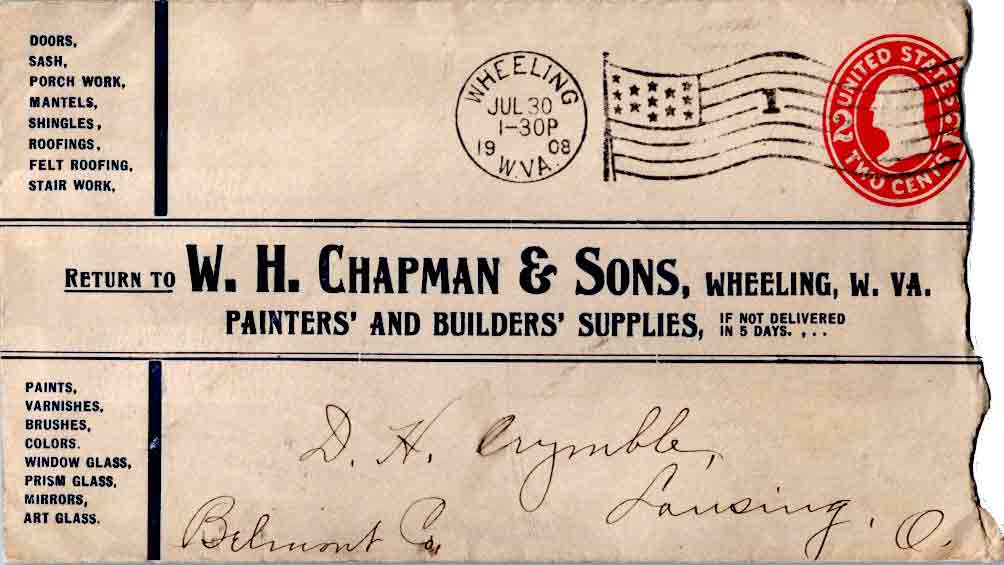 DOORS,
SASH,
PORCH WORK,
MANTELS,
SHINGLES,
ROOFINGS,
FELT ROOFING,
STAIR WORK,
WHEELING
JUL 30
1-30P
19 08
W.VA.
1
UNITED STATES
2 2
TWO CENTS
RETURN TO W. H. CHAPMAN & SONS, WHEELING, W. VA.
PAINTERS' AND BUILDERS' SUPPLIES, IF NOT DELIVERED
IN 5 DAYS. , . .
PAINTS,
VARNISHES,
BRUSHES,
COLORS.
WINDOW GLASS,
PRISM GLASS,
MIRRORS,
ART GLASS.
D. H. Crymble,
Lansing, O.
Belmont Co.